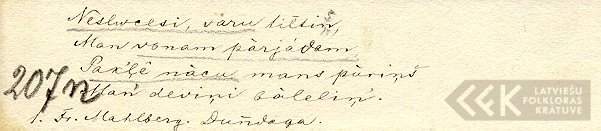 Neslwcesi, varu tiltiņ,
Man vonam pàrjádam,
Pakļē nàcu mans pūriņš
207n Man deviņi bāleliņ'.
1. Fr. Mahlberg. Duńdaga.
LATVIEŠU
FOLKLORAS
KRĀTUVE